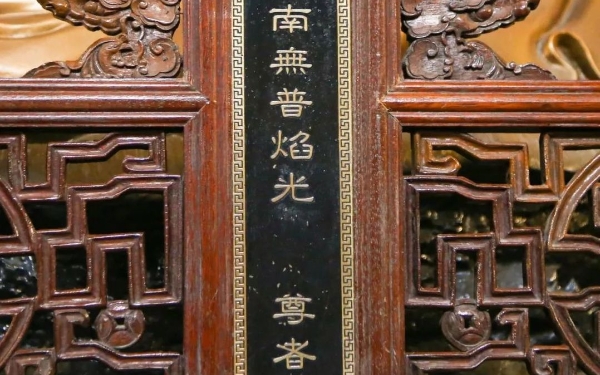 南無普焰光 尊者